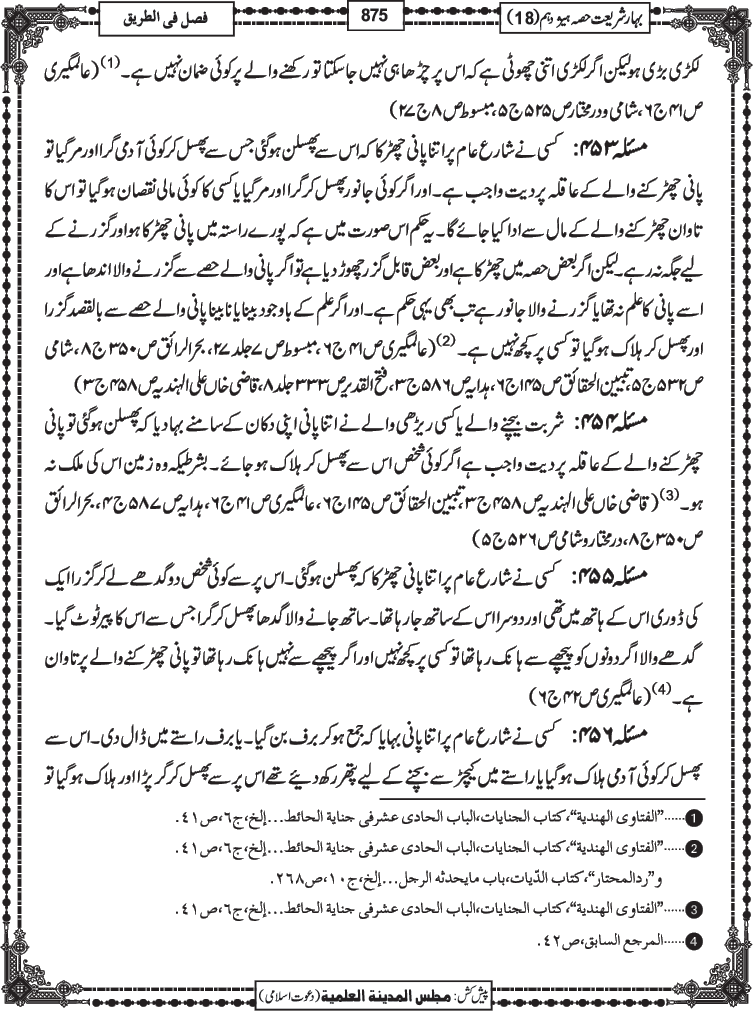 بہار شریعت حصہ ہیژ دہم (18)
875
فصل فی الطریق
لکڑی بڑی ہو لیکن اگر لکڑی اتنی چھوٹی ہے کہ اس پر چڑھا ہی نہیں جاسکتا تو رکھنے والے پر کوئی ضمان نہیں ہے۔(1) (عالمگیری
ص۴۱ ج۶، شامی و درمختار ص۵۲۵ ج۵، مبسوط ص۸ ج۲۷)
مسئلہ ۴۵۳: کسی نے شارع عام پر اتنا پانی چھڑکا کہ اس سے پھسلن ہوگئی جس سے پھسل کر کوئی آدمی گرا اور مر گیا تو
پانی چھڑکنے والے کے عاقلہ پر دیت واجب ہے۔ اور اگر کوئی جانور پھسل کر گرا اور مر گیا یا کسی کا کوئی مالی نقصان ہوگیا تو اس کا
تاوان چھڑکنے والے کے مال سے ادا کیا جائے گا۔ یہ حکم اس صورت میں ہے کہ پورے راستہ میں پانی چھڑکا ہو اور گزرنے کے
لیے جگہ نہ رہے۔ لیکن اگر بعض حصہ میں چھڑکا ہے اور بعض قابل گزر چھوڑ دیا ہے تو اگر پانی والے حصے سے گزرنے والا اندھا ہے اور
اسے پانی کا علم نہ تھا یا گزرنے والا جانور ہے تب بھی یہی حکم ہے۔ اور اگر علم کے باوجود بینا یا نابینا پانی والے حصے سے بالقصد گزرا
اور پھسل کر ہلاک ہوگیا تو کسی پر کچھ نہیں ہے۔(2) (عالمگیری ص۴۱ ج۶، مبسوط ص۷ جلد۲۷، بحر الرائق ص۳۵۰ ج۸، شامی
ص۵۳۲ ج۵، تبیین الحقائق ص۱۴۵ ج۶، ہدایہ ص۵۸۶ ج۳، فتح القدیر ص۳۳۳ جلد۸، قاضی خاں علی الہندیہ ص۴۵۸ ج۳)
مسئلہ ۴۵۴: شربت بیچنے والے یا کسی ریڑھی والے نے اتنا پانی اپنی دکان کے سامنے بہا دیا کہ پھسلن ہوگئی تو پانی
چھڑکنے والے کے عاقلہ پر دیت واجب ہے اگر کوئی شخص اس سے پھسل کر ہلاک ہو جائے۔ بشرطیکہ وہ زمین اس کی ملک نہ
ہو۔(3) (قاضی خاں علی الہندیہ ص۴۵۸ ج۳، تبیین الحقائق ص۱۴۵ ج۶، عالمگیری ص۴۱ ج۶، ہدایہ ص۵۸۷ ج۴، بحر الرائق
ص۳۵۰ ج۸، درمختار و شامی ص۵۲۶ ج۵)
مسئلہ ۴۵۵: کسی نے شارع عام پر اتنا پانی چھڑکا کہ پھسلن ہوگئی۔ اس پر سے کوئی شخص دو گدھے لے کر گزرا ایک
کی ڈوری اس کے ہاتھ میں تھی اور دوسرا اس کے ساتھ جا رہا تھا۔ ساتھ جانے والا گدھا پھسل کر گرا جس سے اس کا پیر ٹوٹ گیا۔
گدھے والا اگر دونوں کو پیچھے سے ہانک رہا تھا تو کسی پر کچھ نہیں اور اگر پیچھے سے نہیں ہانک رہا تھا تو پانی چھڑکنے والے پر تاوان
ہے۔(4) (عالمگیری ص۴۲ ج۶)
مسئلہ ۴۵۶: کسی نے شارع عام پر اتنا پانی بہایا کہ جمع ہو کر برف بن گیا۔ یا برف راستے میں ڈال دی۔ اس سے
پھسل کر کوئی آدمی ہلاک ہوگیا یا راستے میں کیچڑ سے بچنے کے لیے پتھر رکھ دیئے تھے اس پر سے پھسل کر گر پڑا اور ہلاک ہوگیا تو
1......"الفتاوی الهندية"، کتاب الجنايات، الباب الحادی عشر فی جناية الحائط...إلخ، ج۶، ص۴۱.
2......"الفتاوی الهندية"، کتاب الجنايات، الباب الحادی عشر فی جناية الحائط...إلخ، ج۶، ص۴۱.
و"ردالمحتار"، کتاب الدّيات، باب مايحدثه الرجل...إلخ، ج۱۰، ص۲۶۸.
3......"الفتاوی الهندية"، کتاب الجنايات، الباب الحادی عشر فی جناية الحائط...إلخ، ج۶، ص۴۱.
4......المرجع السابق، ص۴۲.
پیش کش: مجلس المدینة العلمیة (دعوت اسلامی)